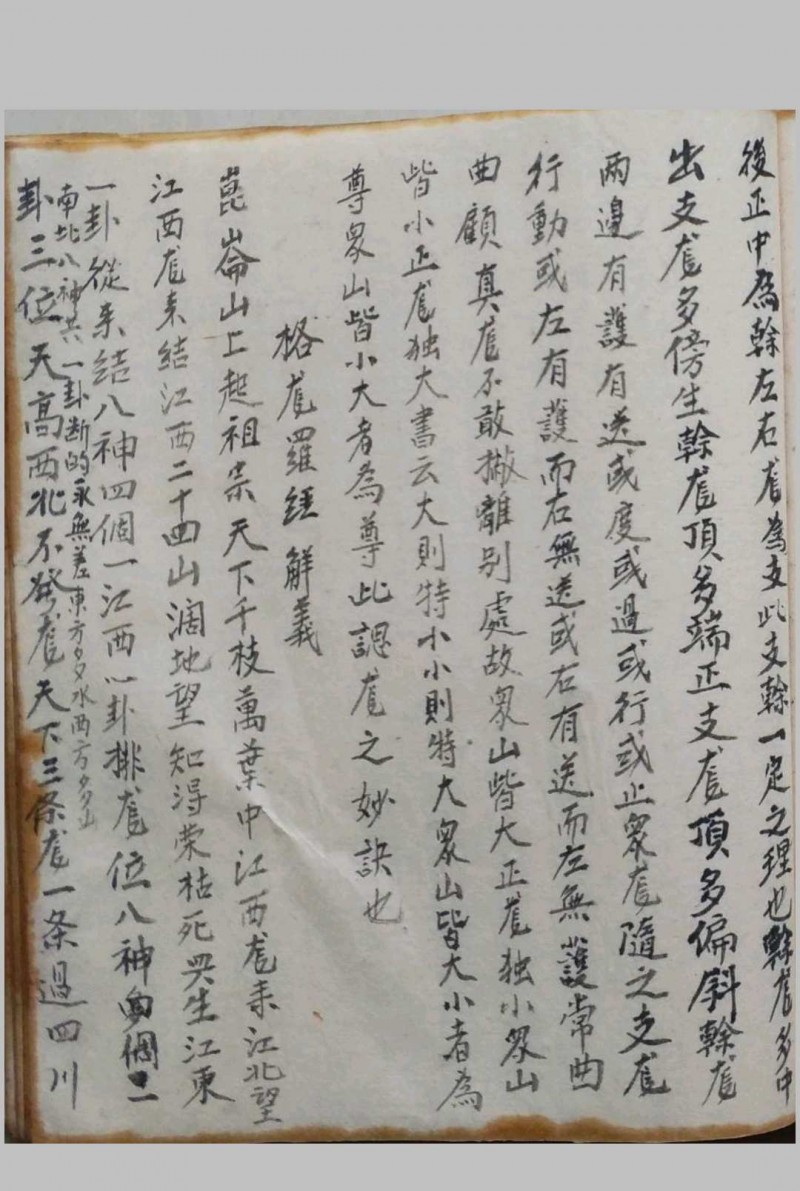 後正中為幹左右龙為支此支幹一定之理也幹龙多中
出支龙多傍生幹龙頂多端正支龙頂多偏斜幹龙
兩邊有護有送或度或過或行或止眾龙隨之支龙
行動或左有護而右無送或右有送而左無護常曲
曲顧真龙不敢撇離别處故眾山皆大正龙独小眾山
皆小正龙独大書云大則特小小則特大眾山皆大小者為
尊眾山皆小大者為尊此認龙之妙訣也
格龙羅經解義
崑崙山上起祖宗天下千枝萬葉中江西龙来江北望
江西龙来結江西二十四山濶地望知得荣枯死與生江東
一卦從来結八神四個一江西一卦排龙位八神四個二
南北八神共一卦断的永無差東方多水西方多山
卦三位天高西北不發龙天下三條龙一条過四川